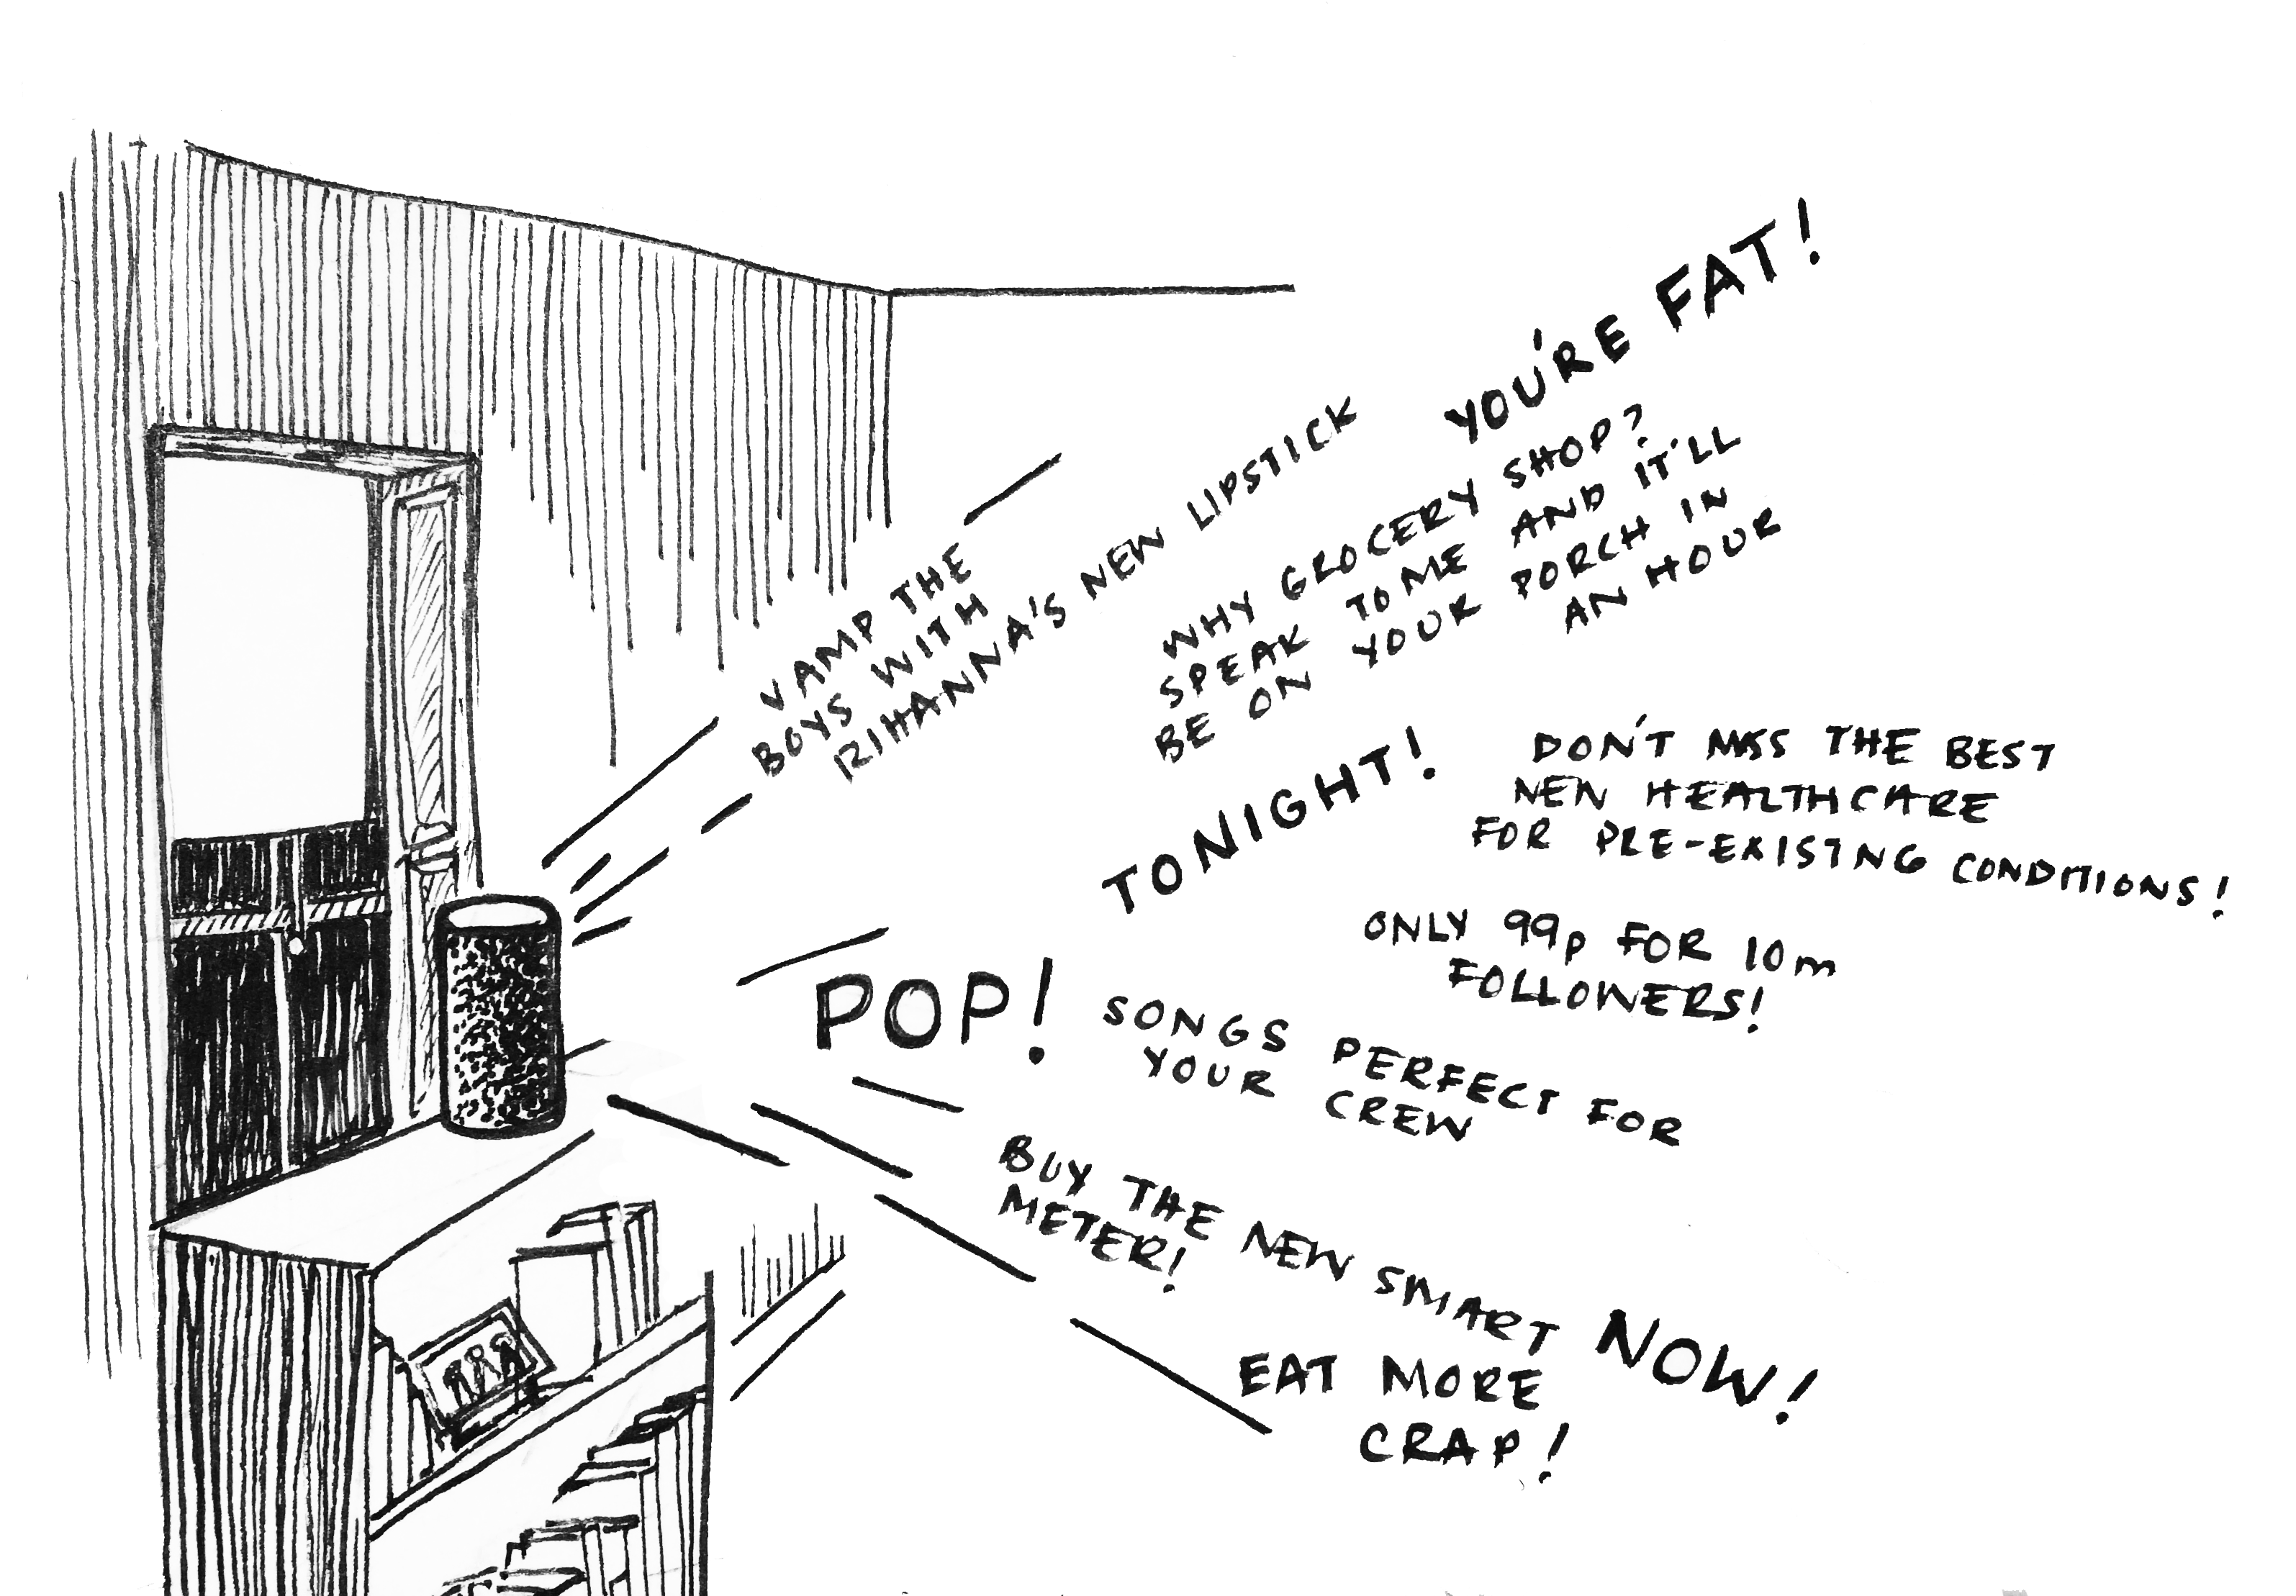 YOU'RE FAT!
VAMP THE
BOYS WITH
RIHANNA'S NEW LIPSTICK
WHY GROCERY SHOP?
SPEAK TO ME AND IT'LL
BE ON YOUR PORCH IN
AN HOUR
TONIGHT!
DON'T MISS THE BEST
NEW HEALTHCARE
FOR PRE-EXISTING CONDITIONS!
ONLY 99p FOR 10m
FOLLOWERS!
POP!
SONGS PERFECT FOR
YOUR CREW
BUY THE NEW SMART
METER!
NOW!
EAT MORE
CRAP!